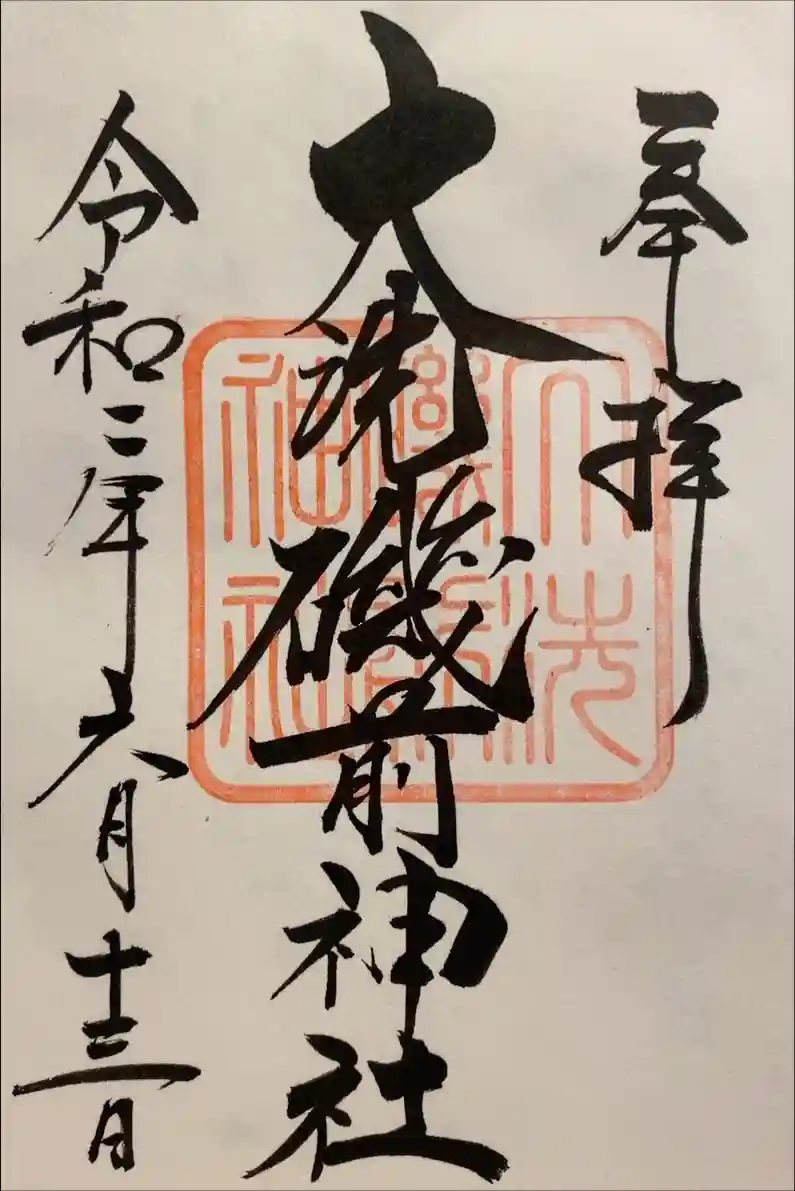 奉拝
大洗磯前神社
令和二年六月十三日
大洗
磯前
神社